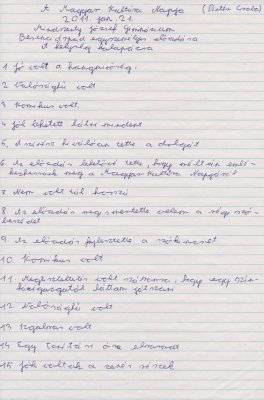 A Magyar Kultúra Napja (Beták Csaba)
2011. jan. 21.
Mindszenty József Gimnázium
Besenczi Árpád egyszemélyes előadása
A helység kalapácsa
1 Jó volt a hangulatiság.
2 Valósághű volt
3 Komikus volt
4 Jól lehetett látni mindent
5. A színész kiválóan tette a dolgát
6 Az előadás lehetővé tette, hogy méltón emlé-
kezhessünk meg a Magyar Kultúra Napjáról
7 Nem volt túl hosszú
8 Az előadás megismertette velem a régi szó-
beszédet
9 Az előadás fejlesztette a szókincset
10. Komikus volt
11. Megtisztelés volt számomra, hogy egy szín-
házigazgatót láttam játszani
12 Valósághű volt
13 Izgalmas volt
14 Egy tanítási óra elmaradt
15 Jók voltak a zenés részek